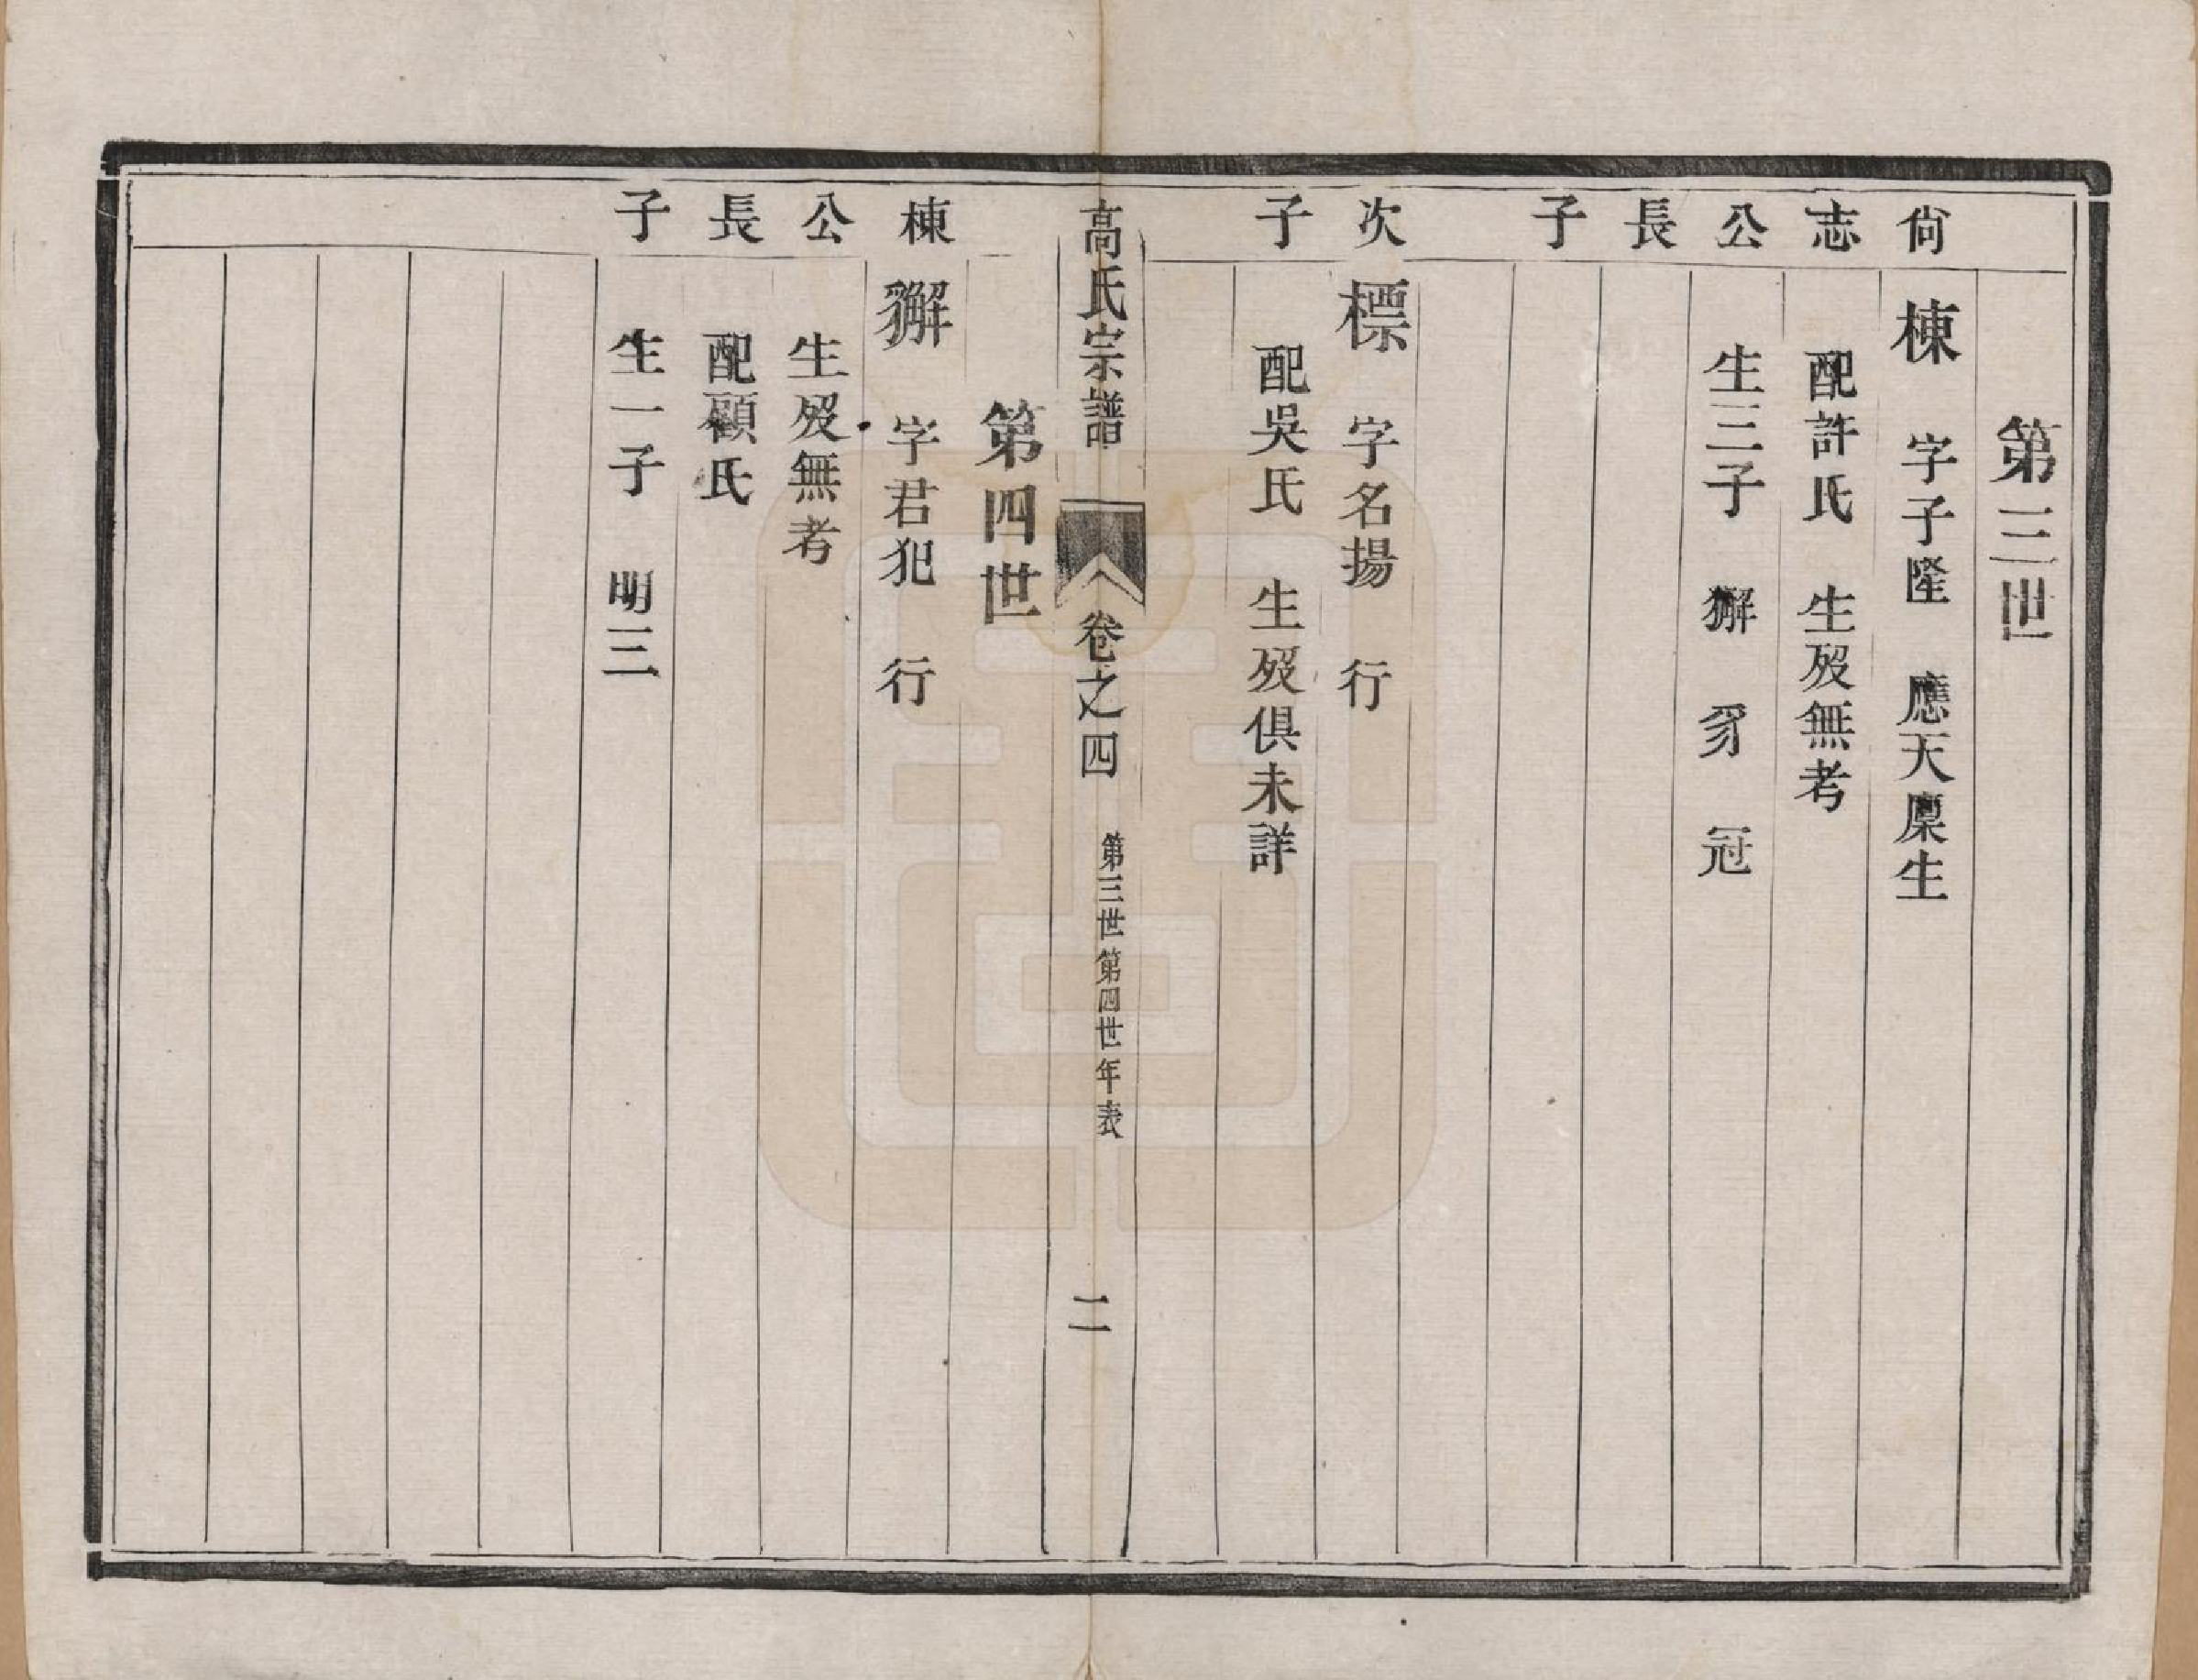 第三世
尙志公長子
棟 字子隆 應天廩生
配許氏 生歿無考
生三子 獬 豸 冠
次子
標 字名揚 行
配吳氏 生歿俱未詳
高氏宗譜 卷之四 第三世第四世年表 二
第四世
棟公長子
獬 字君犯 行
生歿無考
配顧氏
生一子 明三